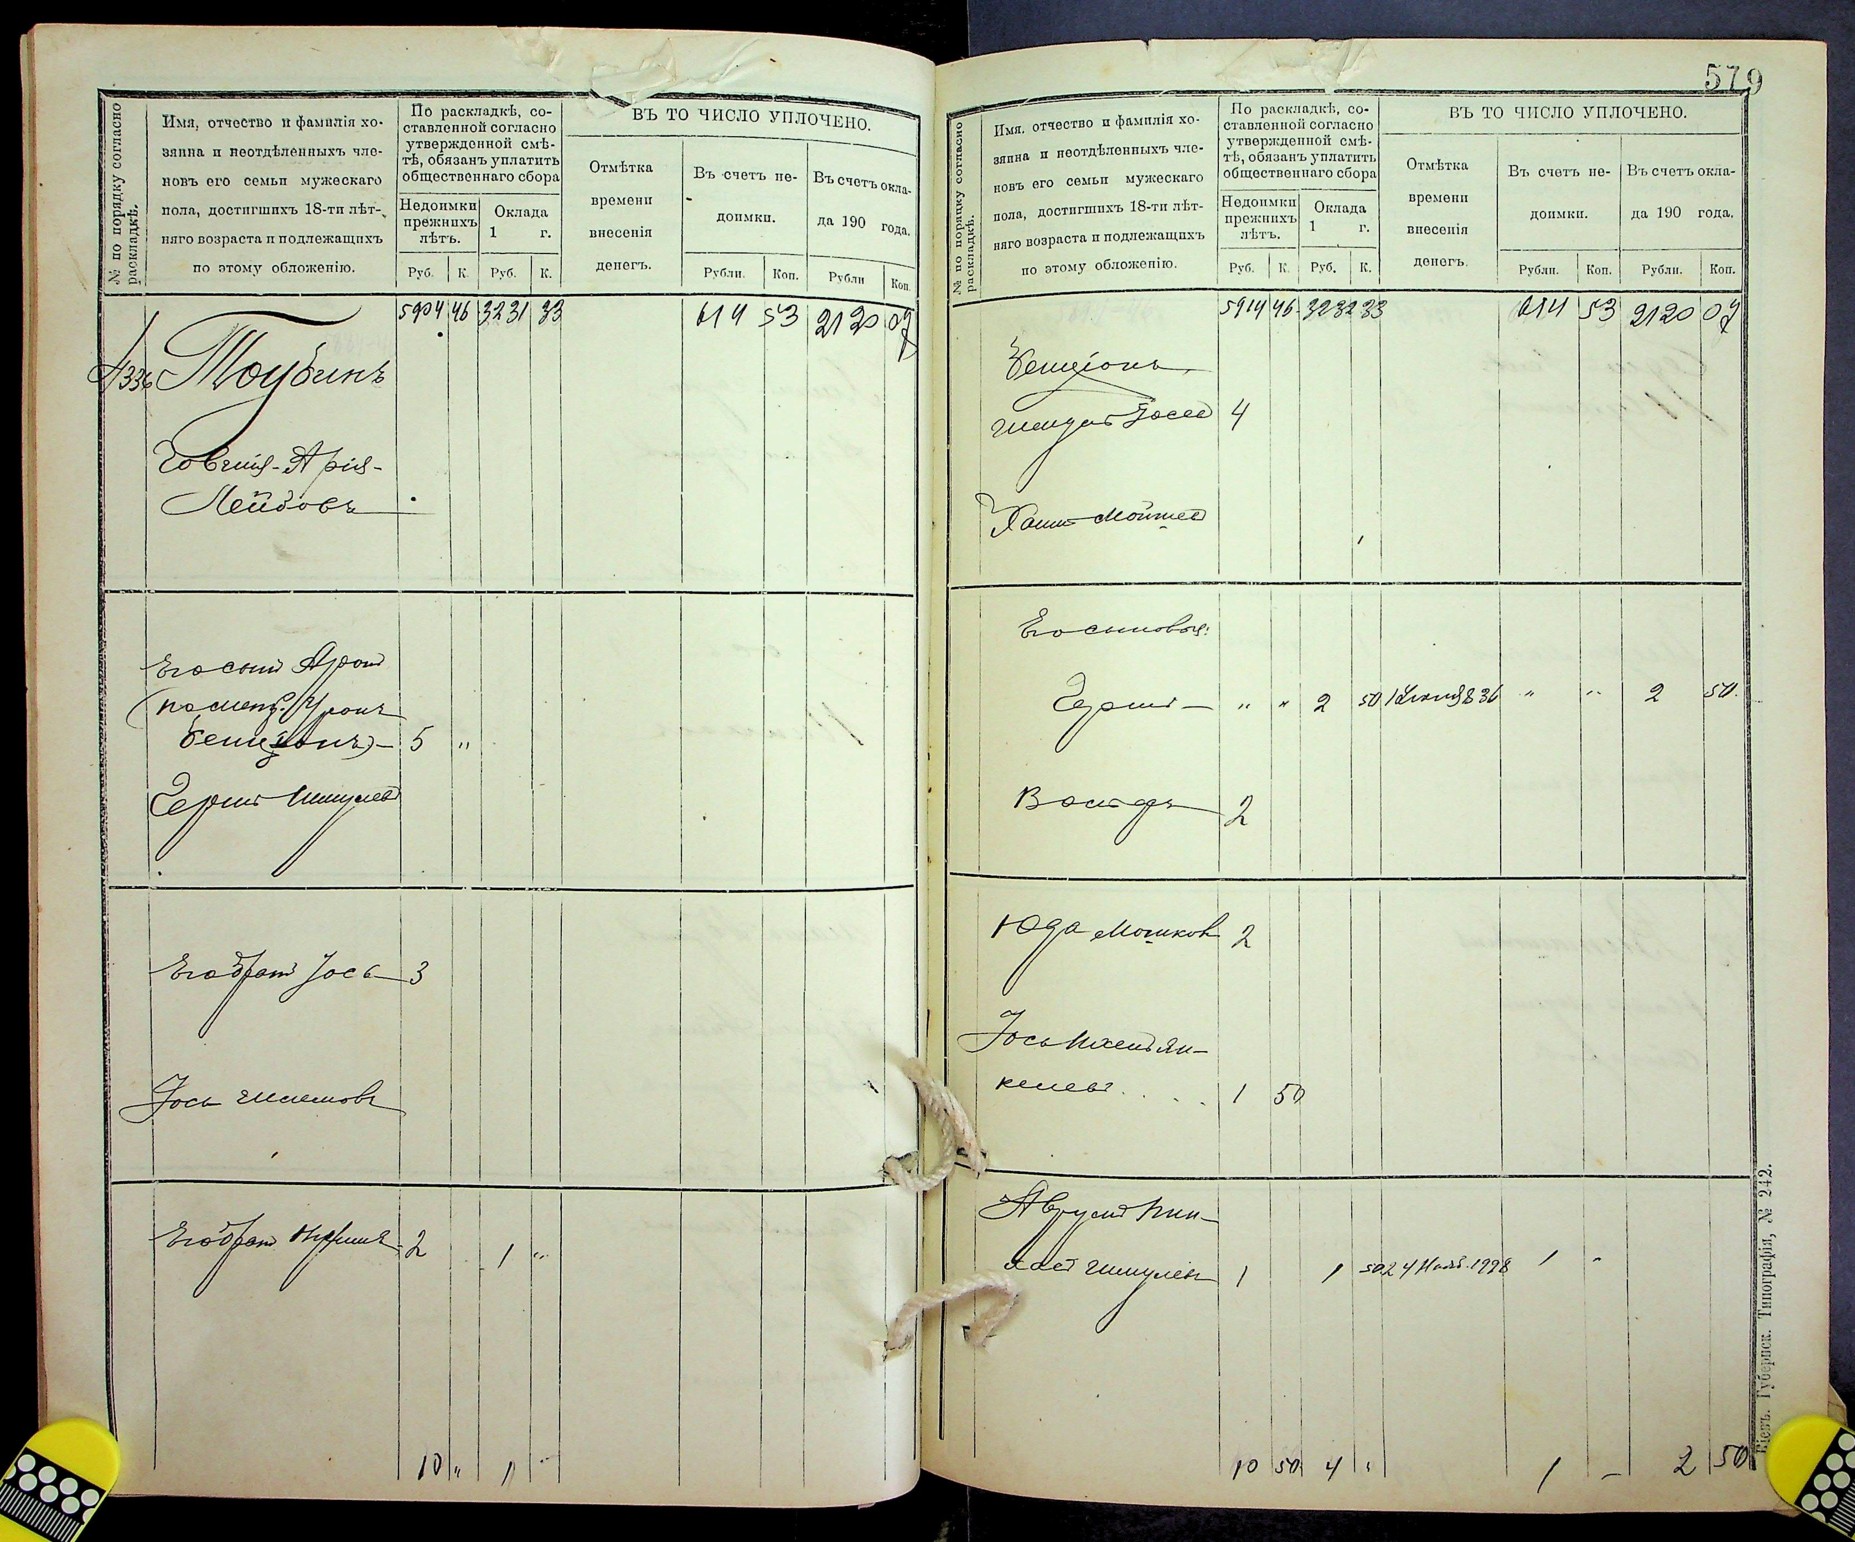 № по порядку согласно
раскладкѣ.
Имя, отчество и фамилія хо-
зяина и неотдѣленныхъ чле-
новъ его семьи мужескаго
пола, достигшихъ 18-ти лѣт-
няго возраста и подлежащихъ
по этому обложенію.
По раскладкѣ, со-
ставленной согласно
утвержденной смѣ-
тѣ, обязанъ уплатить
общественнаго сбора
Недоимки
прежнихъ
лѣтъ.
Оклада
1 г.
Руб. К. Руб. К.
ВЪ ТО ЧИСЛО УПЛОЧЕНО.
Отмѣтка
времени
внесенія
денегъ.
Въ счетъ не-
доимки.
Въ счетъ окла-
да 190 года.
Рубли. Коп. Рубли Коп.
5904 46 3231 33 614 53 2120 07
336 Тоубинъ
Арія-
Лейбовъ
Его сынъ Аронъ
Бенціонъ) 5 "
Герш Шмулев
Его братъ Іось 3
Іось
Его братъ 2 1 "
10 " 1 "
579
№ по порядку согласно
раскладкѣ.
Имя, отчество и фамилія хо-
зяина и неотдѣленныхъ чле-
новъ его семьи мужескаго
пола, достигшихъ 18-ти лѣт-
няго возраста и подлежащихъ
по этому обложенію.
По раскладкѣ, со-
ставленной согласно
утвержденной смѣ-
тѣ, обязанъ уплатить
общественнаго сбора
Недоимки
прежнихъ
лѣтъ.
Оклада
1 г.
Руб. К. Руб. К.
ВЪ ТО ЧИСЛО УПЛОЧЕНО.
Отмѣтка
времени
внесенія
денегъ.
Въ счетъ не-
доимки.
Въ счетъ окла-
да 190 года.
Рубли. Коп. Рубли. Коп.
5914 46 3232 33 614 53 2120 07
Бенціонъ
Іосев 4
Хаим Мойшев
Его сыновья:
Герш — " " 2 50 " " 2 50
2
Юда Мошков 2
Іось Ян-
келевъ 1 50
Аврумъ Пин-
хас Шмулевъ 1 1 50 24 Нояб. 1 "
10 50 4 " 1 — 2 50
Кіевъ. Губернск. Типографія, № 242.